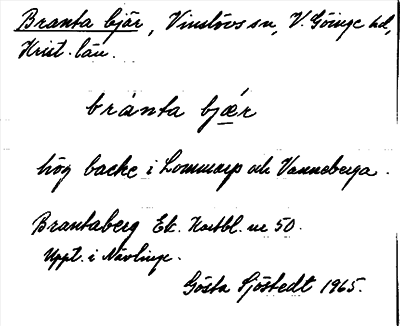 Branta bjär, Vinslövs sn, V. Göinge hd,
Krist. län.
bránta bjær
hög backe i Lommarp och Vanneberga.
Brantaberg Ek. Kartbl. nr 50.
Uppt. i Nävlinge.
Gösta Sjöstedt 1965.